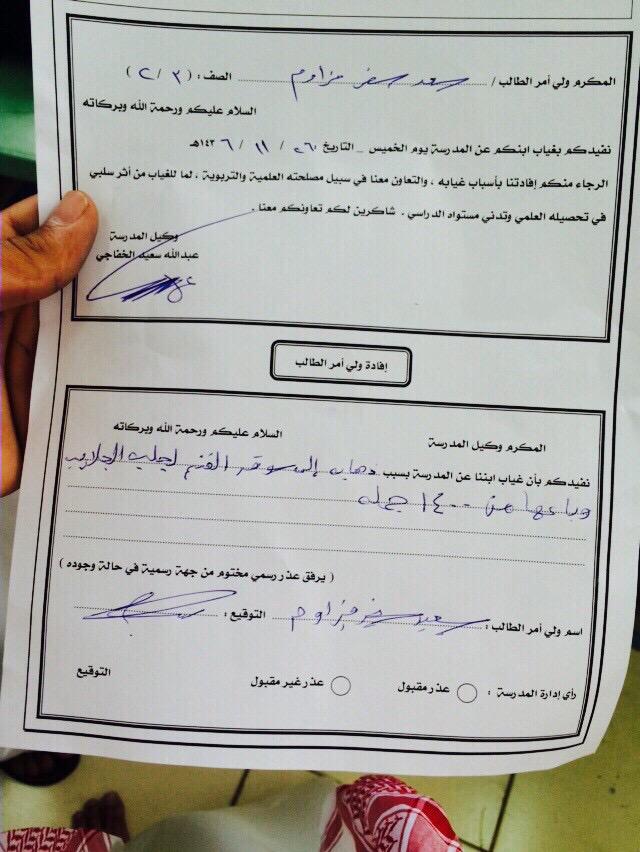 المكرم ولي أمر الطالب / سعد سفر مزاوم الصف : ( ٣ / ٢ )
السلام عليكم ورحمة الله وبركاته
نفيدكم بغياب ابنكم عن المدرسة يوم الخميس _ التاريخ ٢٦ / ١١ / ١٤٣٦هـ
الرجاء منكم إفادتنا بأسباب غيابه ، والتعاون معنا في سبيل مصلحته العلمية والتربوية ، لما للغياب من أثر سلبي
في تحصيله العلمي وتدني مستواه الدراسي . شاكرين لكم تعاونكم معنا .
وكيل المدرسة
عبدالله سعيد الخفاجي
إفادة ولي أمر الطالب
المكرم وكيل المدرسة السلام عليكم ورحمة الله وبركاته
نفيدكم بأن غياب ابننا عن المدرسة بسبب ذهابه إلى سوق الغنم لجلب الجلايب
وباعها من ١٤٠٠ جمله
( يرفق عذر رسمي مختوم من جهة رسمية في حالة وجوده )
اسم ولي أمر الطالب : سعيد سفر مزاوم التوقيع :
رأي إدارة المدرسة : عذر مقبول عذر غير مقبول التوقيع